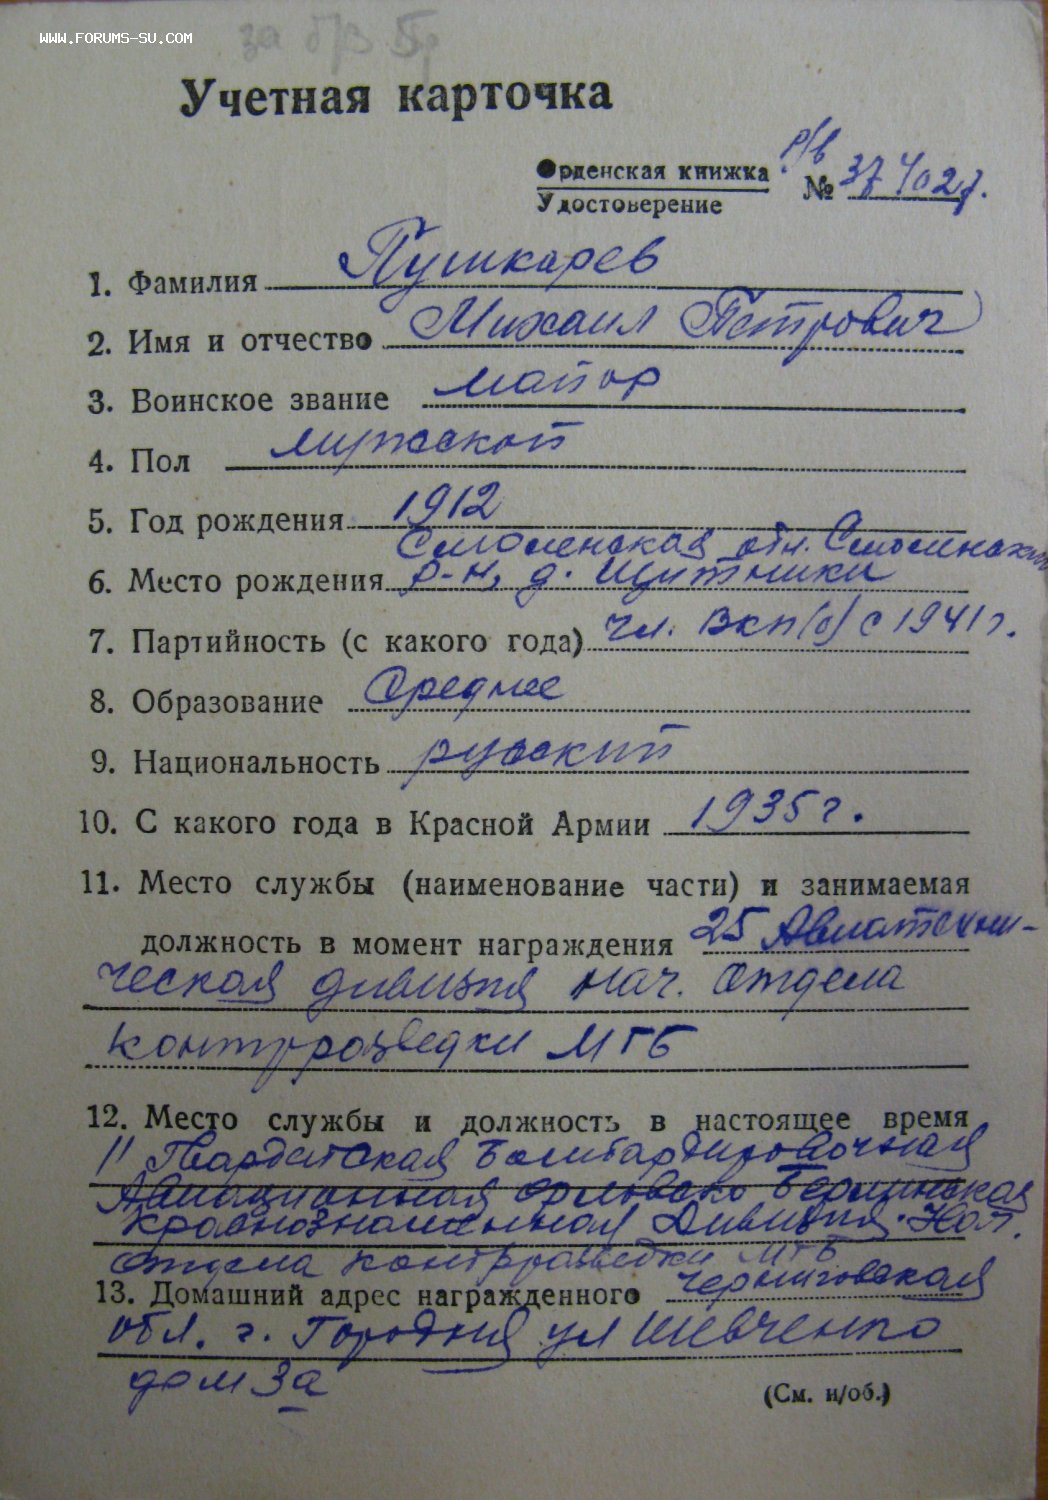 WWW.FORUMS-SU.COM
за
Учетная карточка
б/в
Орденская книжка № 374027.
Удостоверение
1. Фамилия Пушкарев
2. Имя и отчество Михаил Петрович
3. Воинское звание майор
4. Пол мужской
5. Год рождения 1912
Смоленская обл. Смоленский
6. Место рождения р-н, д. Щитники
7. Партийность (с какого года) Чл. ВКП(б) с 1941 г.
8. Образование Среднее
9. Национальность русский
10. С какого года в Красной Армии 1935 г.
11. Место службы (наименование части) и занимаемая
должность в момент награждения 25 Авиатехни-
ческая дивизия нач. отдела
контрразведки МГБ
12. Место службы и должность в настоящее время
11 Гвардейская Бомбардировочная
Авиационная Орловско Берлинская
Краснознаменная Дивизия. Нач.
отдела контрразведки МГБ
13. Домашний адрес награжденного Черниговская
обл. г. Городня ул Шевченко
дом 3а
(См. н/об.)